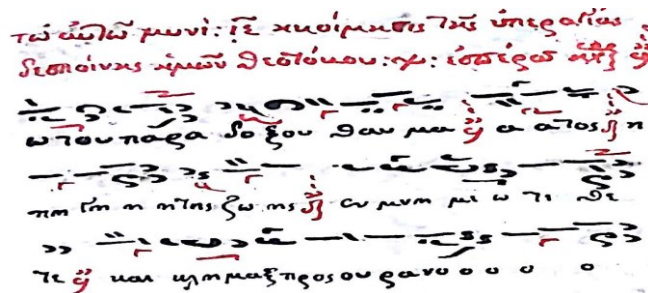 τῷ αὐτῷ μηνὶ: ιε ἡ κοίμησις τῆς ὑπεραγίας
δεσποίνης ἡμῶν θεοτόκου: ἑσπέρας
ω του παρα δο ξου θαυ μα α α τος η
πη γη η η της ζω ης εν μνη μι ω τι θε
τε και κλημαξ προς ου ρανο ο ο ο ο